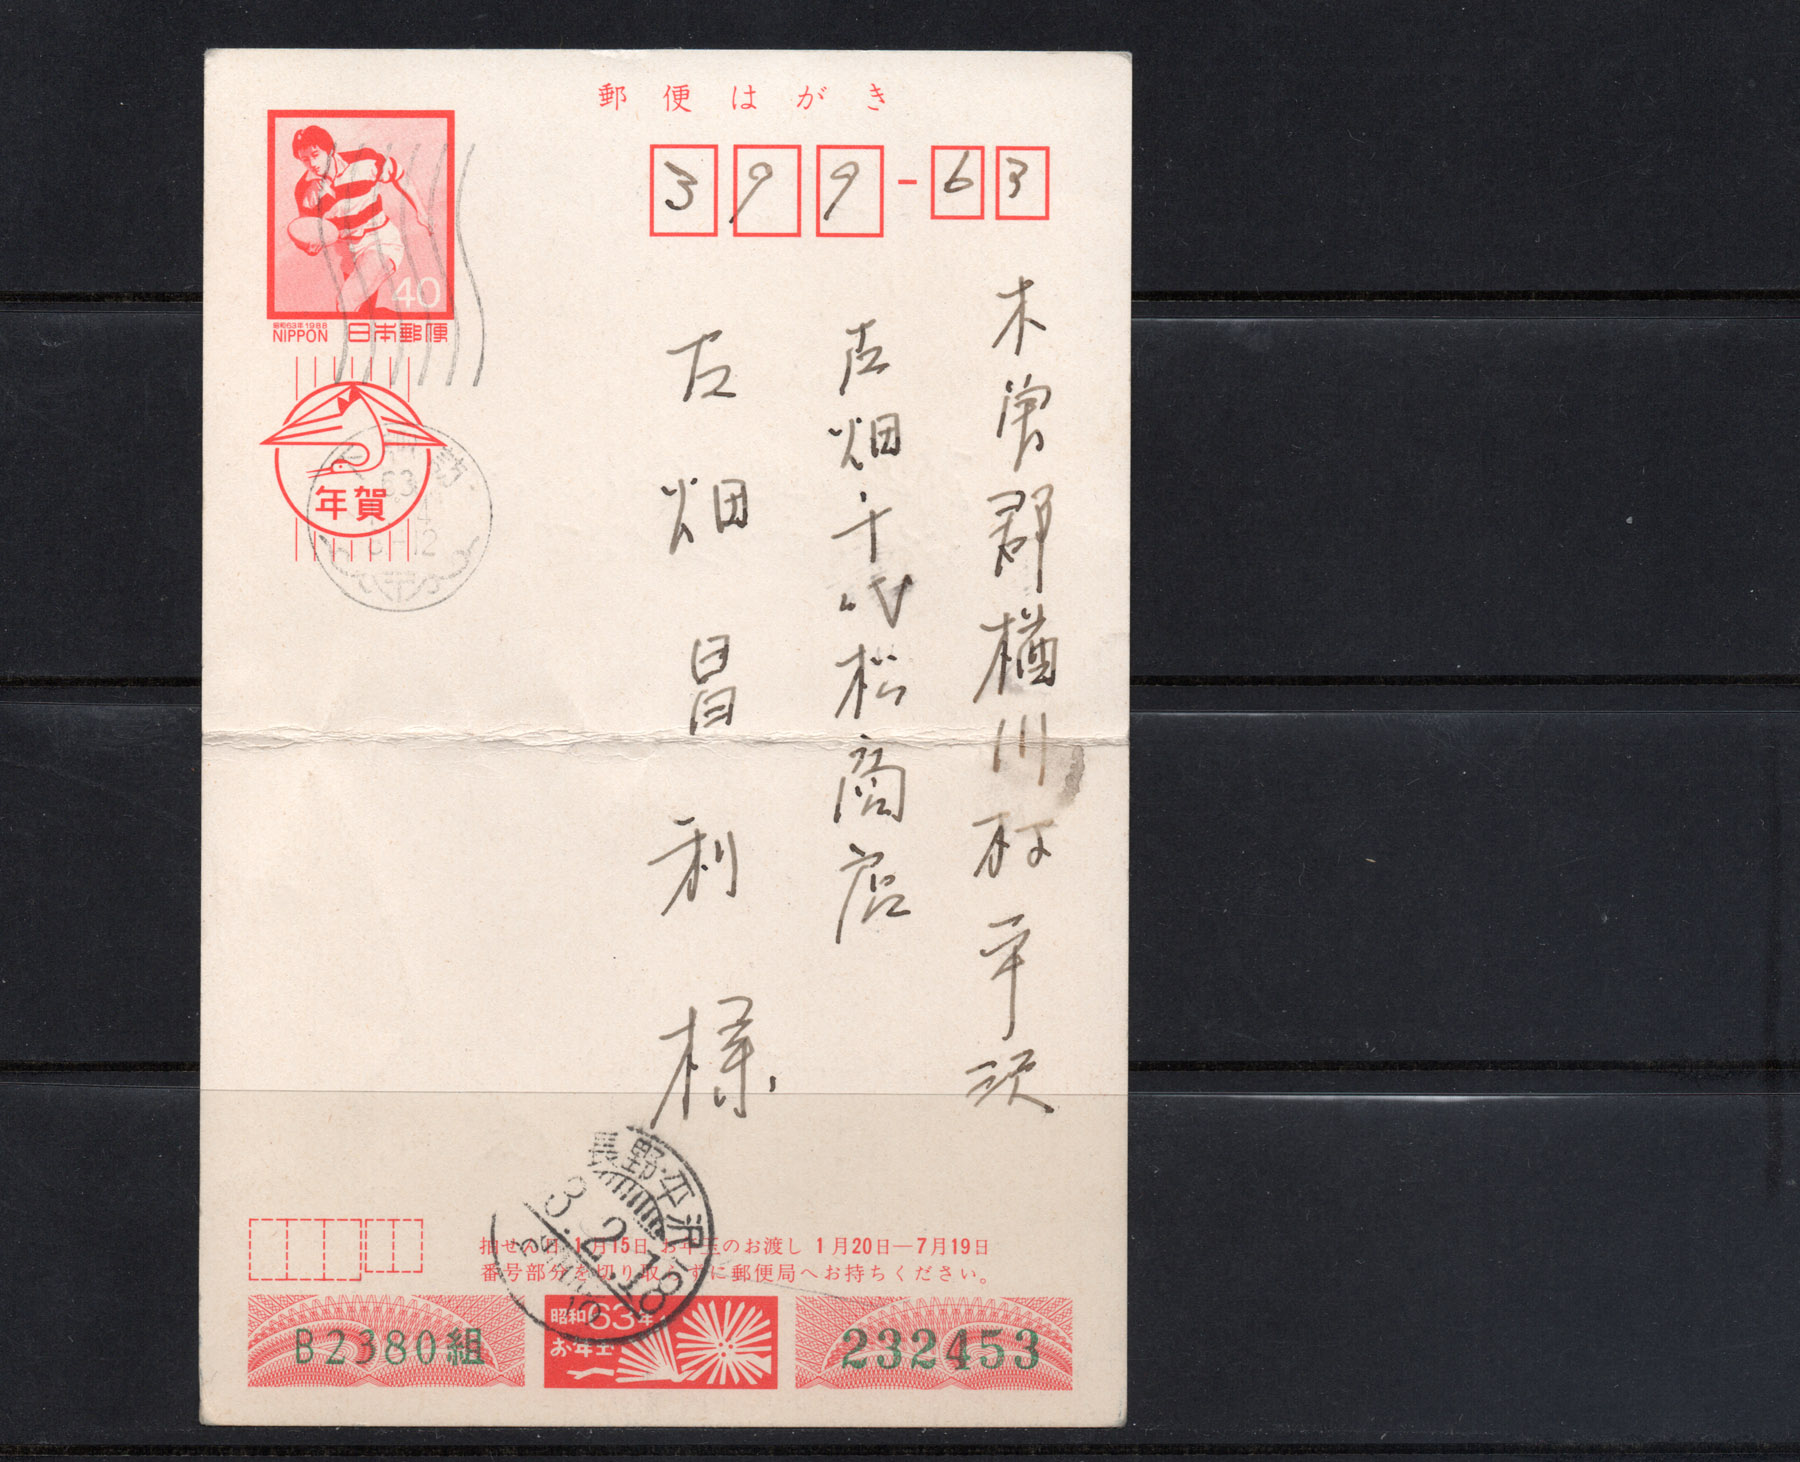 郵便はがき
399-63
40
昭和63年1988
NIPPON 日本郵便
年賀
訪
63
12
木曽郡楢川村平沢
古畑千代松商店
古畑昌利様
長野・平沢
3.2.18
抽せん日 1月15日 お年玉のお渡し 1月20日—7月19日
番号部分を切り取らずに郵便局へお持ちください。
B2380組
昭和63年
お年玉
232453